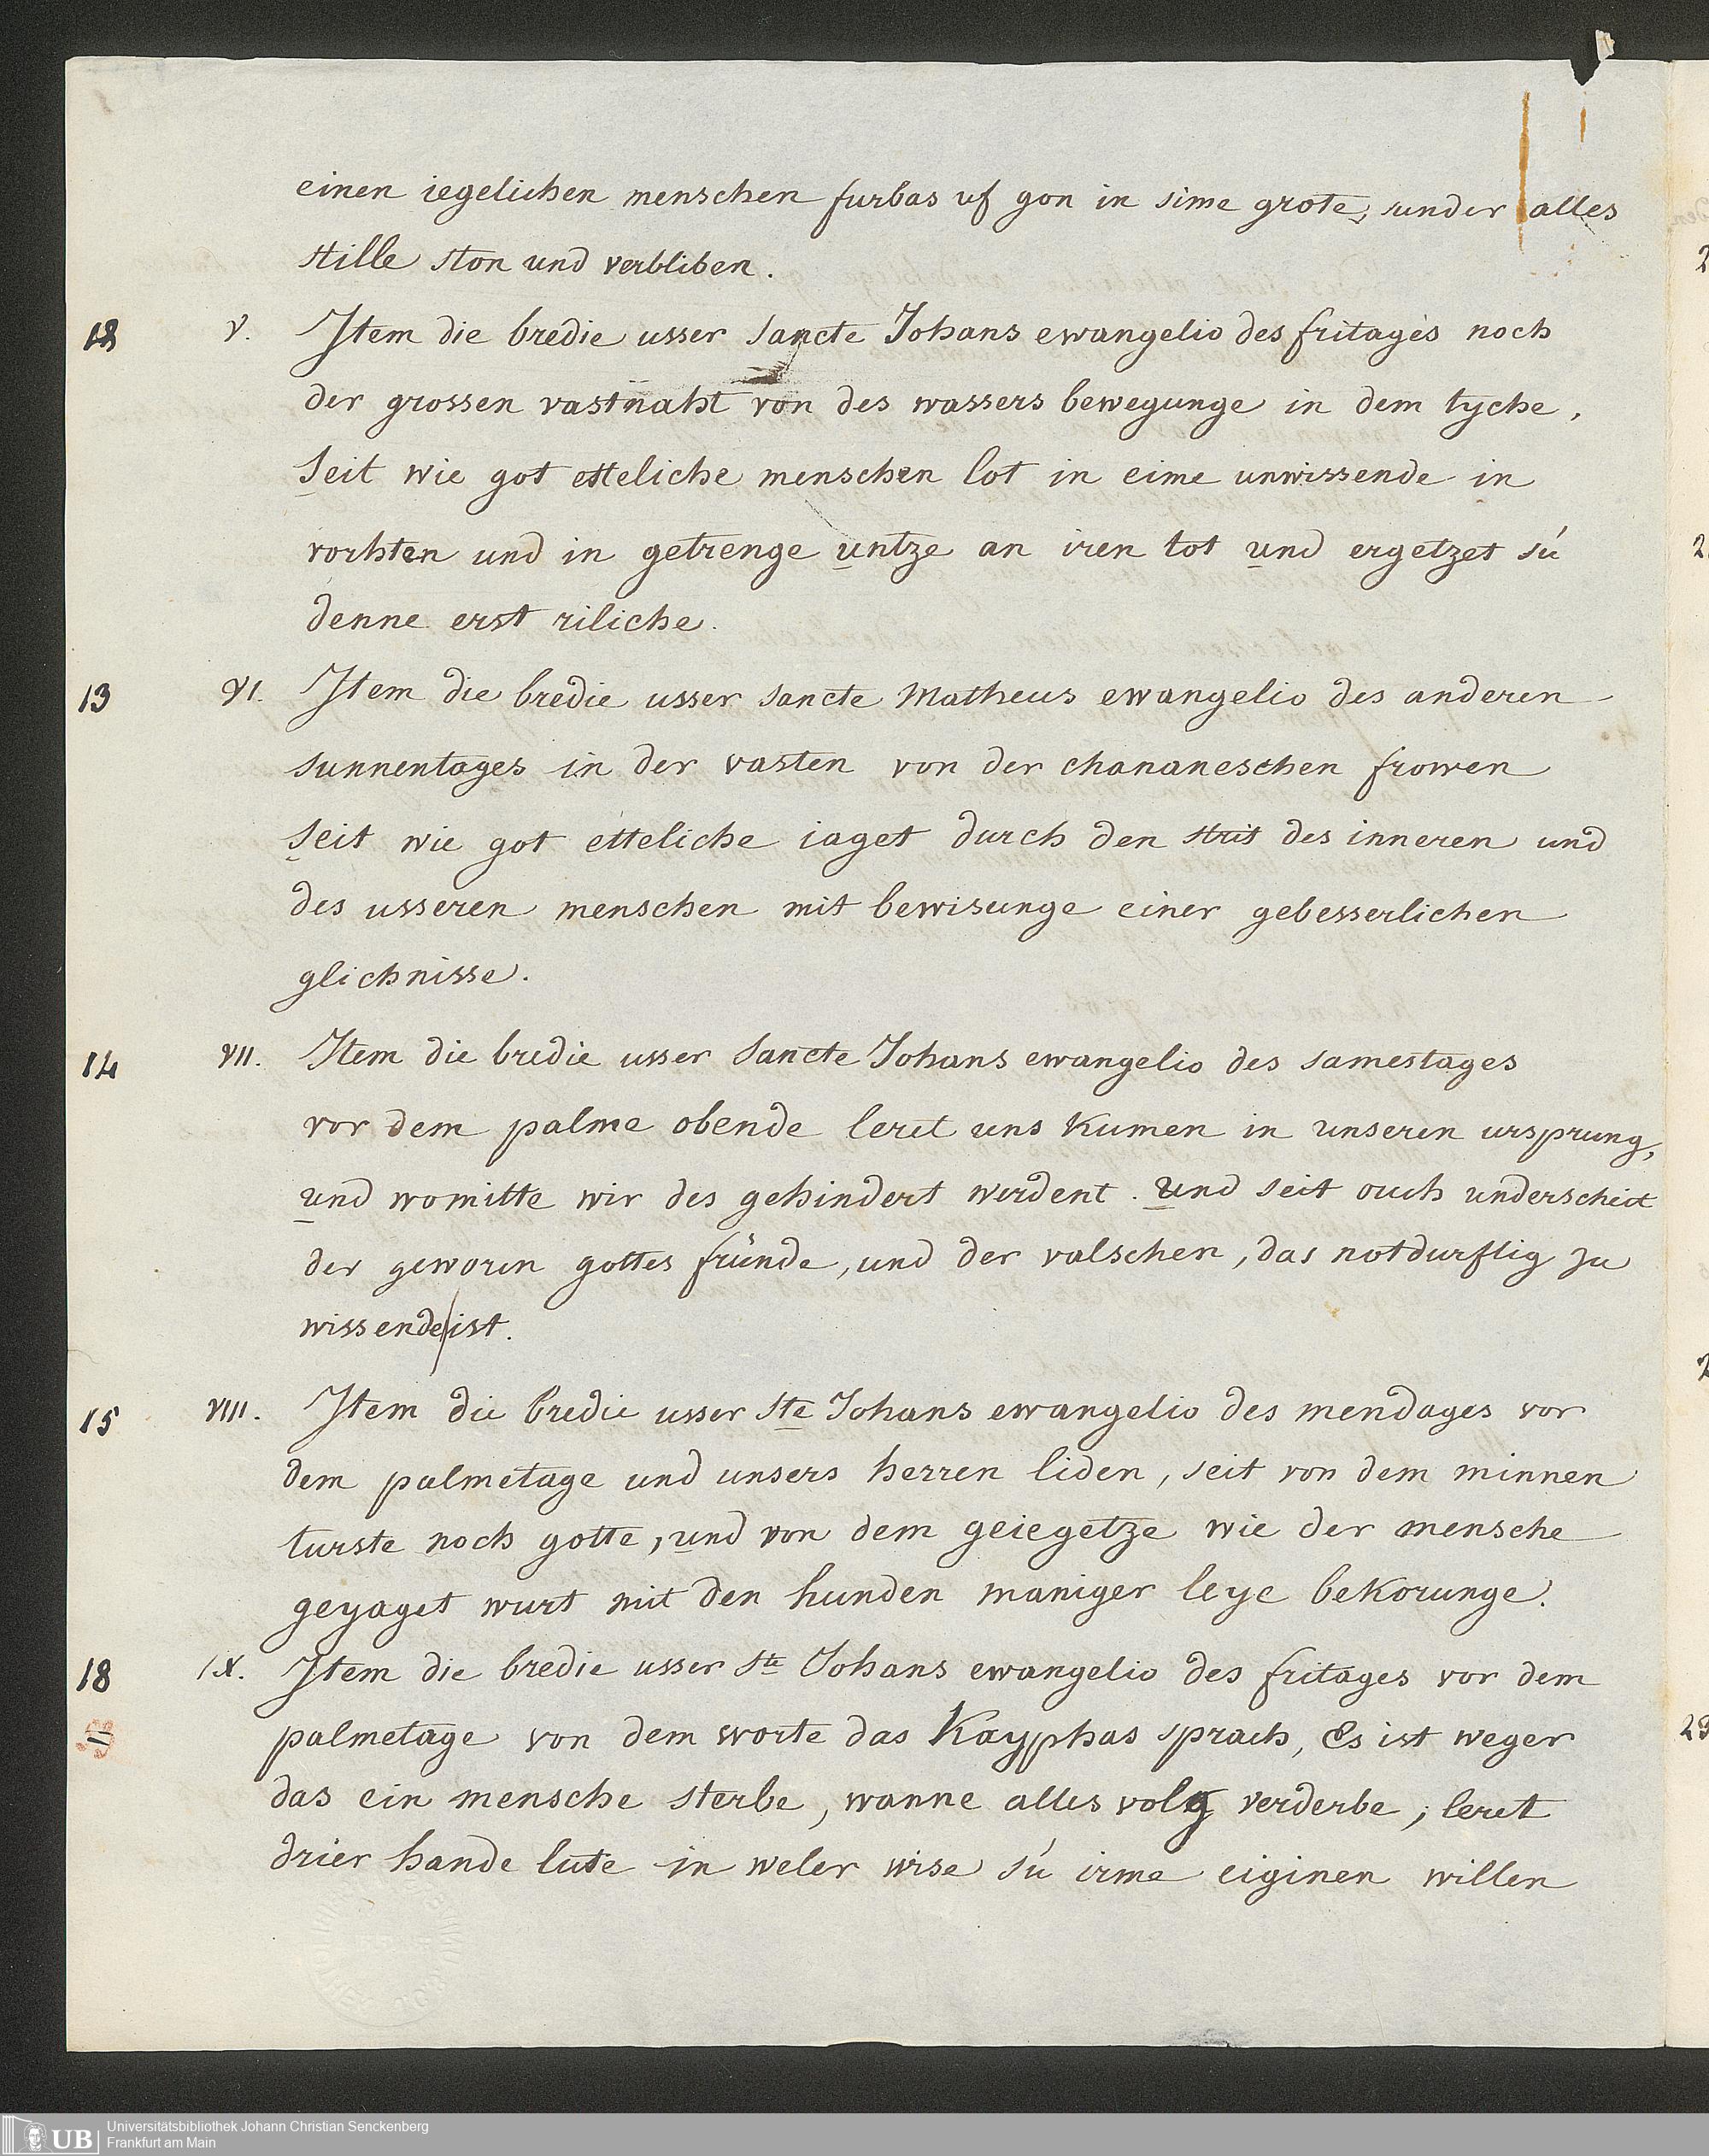 einen iegelichen menschen furbas uf gon in sime grote, sunder alles
stille ston und verbliben.
12 V. Item die bredie usser sancte Johans ewangelio des fritages noch
der grossen vastnaht von des wassers bewegunge in dem tyche,
seit wie got etteliche menschen lot in eime unwissende in
vorhten und in getrenge untze an iren tot und ergetzet sú
denne erst riliche.
13 VI. Item die bredie usser sancte Matheus ewangelio des anderen
sunnentages in der vasten von der chananeschen frowen
seit wie got etteliche iaget durch den strit des inneren und
des usseren menschen mit bewisunge einer gebesserlichen
glichnisse.
14 VII. Item die bredie usser sancte Johans ewangelio des samestages
vor dem palme obende leret uns kumen in unseren ursprung,
und womitte wir des gehindert werdent. Und seit ouch underscheit
der geworen gottes fründe, und der valschen, das notdurftig zu
wissende/ist.
15 VIII. Item die bredie usser Ste Johans ewangelio des mendages vor
dem palmetage und unsers herren liden, seit von dem minnen
turste noch gotte, und von dem geiegetze wie der mensche
geyaget wurt mit den hunden maniger leye bekorunge.
18 IX. Item die bredie usser Ste Johans ewangelio des fritages vor dem
palmetage von dem worte das Kayphas sprach, Es ist weger
das ein mensche sterbe, wanne alles volg verderbe, leret
drier hande lute in weler wise sú irme eiginen willen
2
2
2
23
UB Universitätsbibliothek Johann Christian Senckenberg
Frankfurt am Main